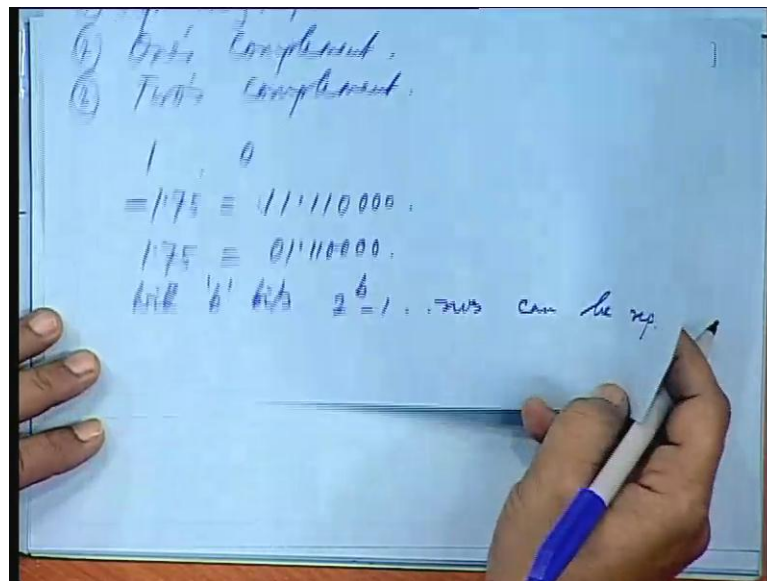 (1) One's Complement.
(2) Two's complement.
1 , 0
-1.75 ≡ 11.110000.
1.75 ≡ 01.110000.
with 'b' bits 2^b-1 . nos can be rep.